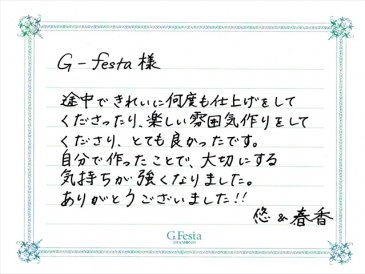 G-festa様
途中できれいに何度も仕上げをして
くださったり、楽しい雰囲気作りをして
くださり、とても良かったです。
自分で作ったことで、大切にする
気持ちが強くなりました。
ありがとうございました!!
悠&春香
G.Festa